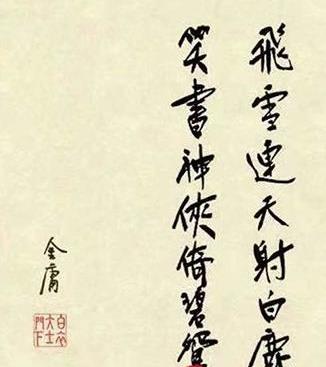 飛雪連天射白鹿
笑書神俠倚碧鴛
金庸
白衣
大士
門下